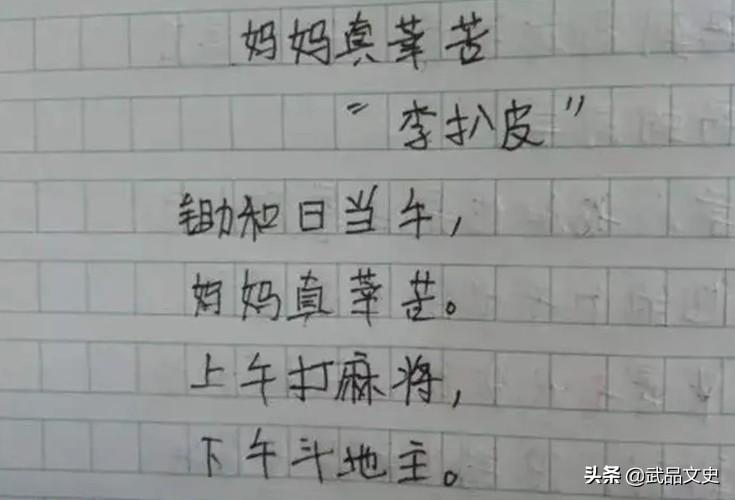 妈妈真莘苦
“李扒皮”
锄和日当午，
妈妈真莘苦。
上午打麻将，
下午斗地主。
头条 @武品文史